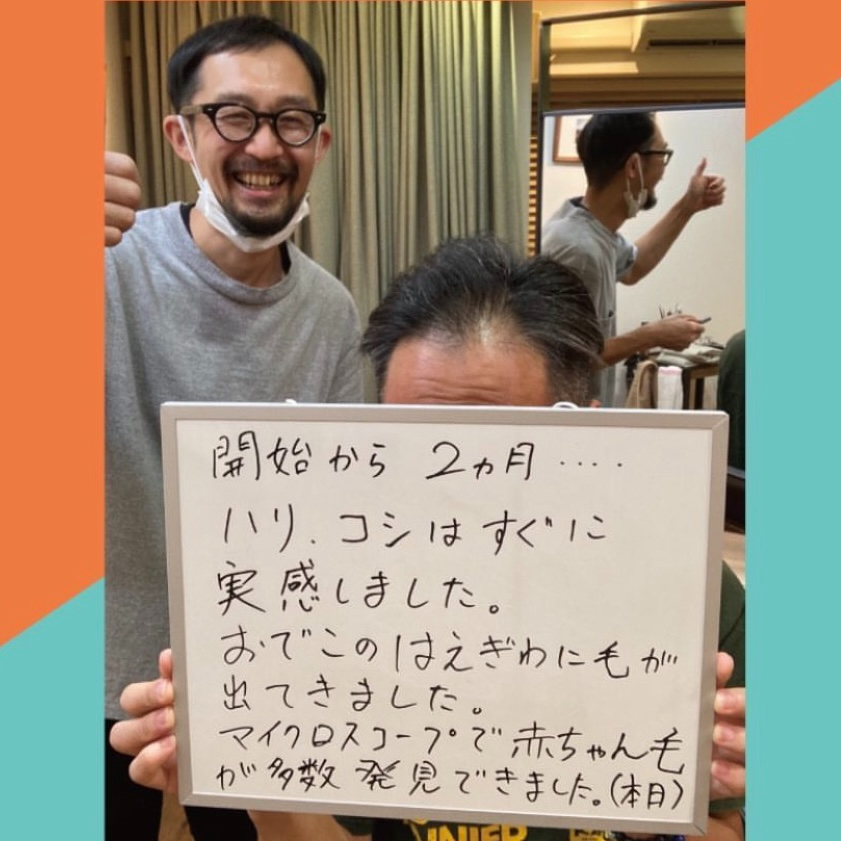 開始から 2ヵ月 ‥‥
ハリ、コシは すぐに
実感しました。
おでこの はえぎわに毛が
出てきました。
マイクロスコープで赤ちゃん毛
が多数 発見できました。(本日)